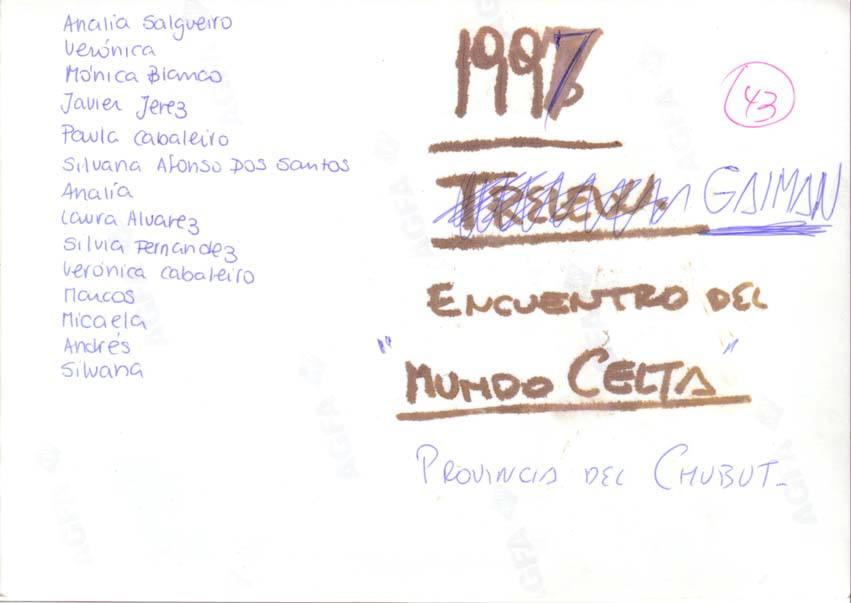 Analia Salgueiro
Verónica
Mónica Blanco
Javier Jerez
Paula Cabaleiro
Silvana Afonso Dos Santos
Analía
Laura Alvarez
Silvia Fernandez
Verónica Cabaleiro
Marcos
Micaela
Andrés
Silvana
1997
43
TRELEW GAIMAN
ENCUENTRO DEL
"MUNDO CELTA"
PROVINCIA DEL CHUBUT-
AGFA
AGFA
AGFA
AGFA
AGFA
AGFA
AGFA
AGFA